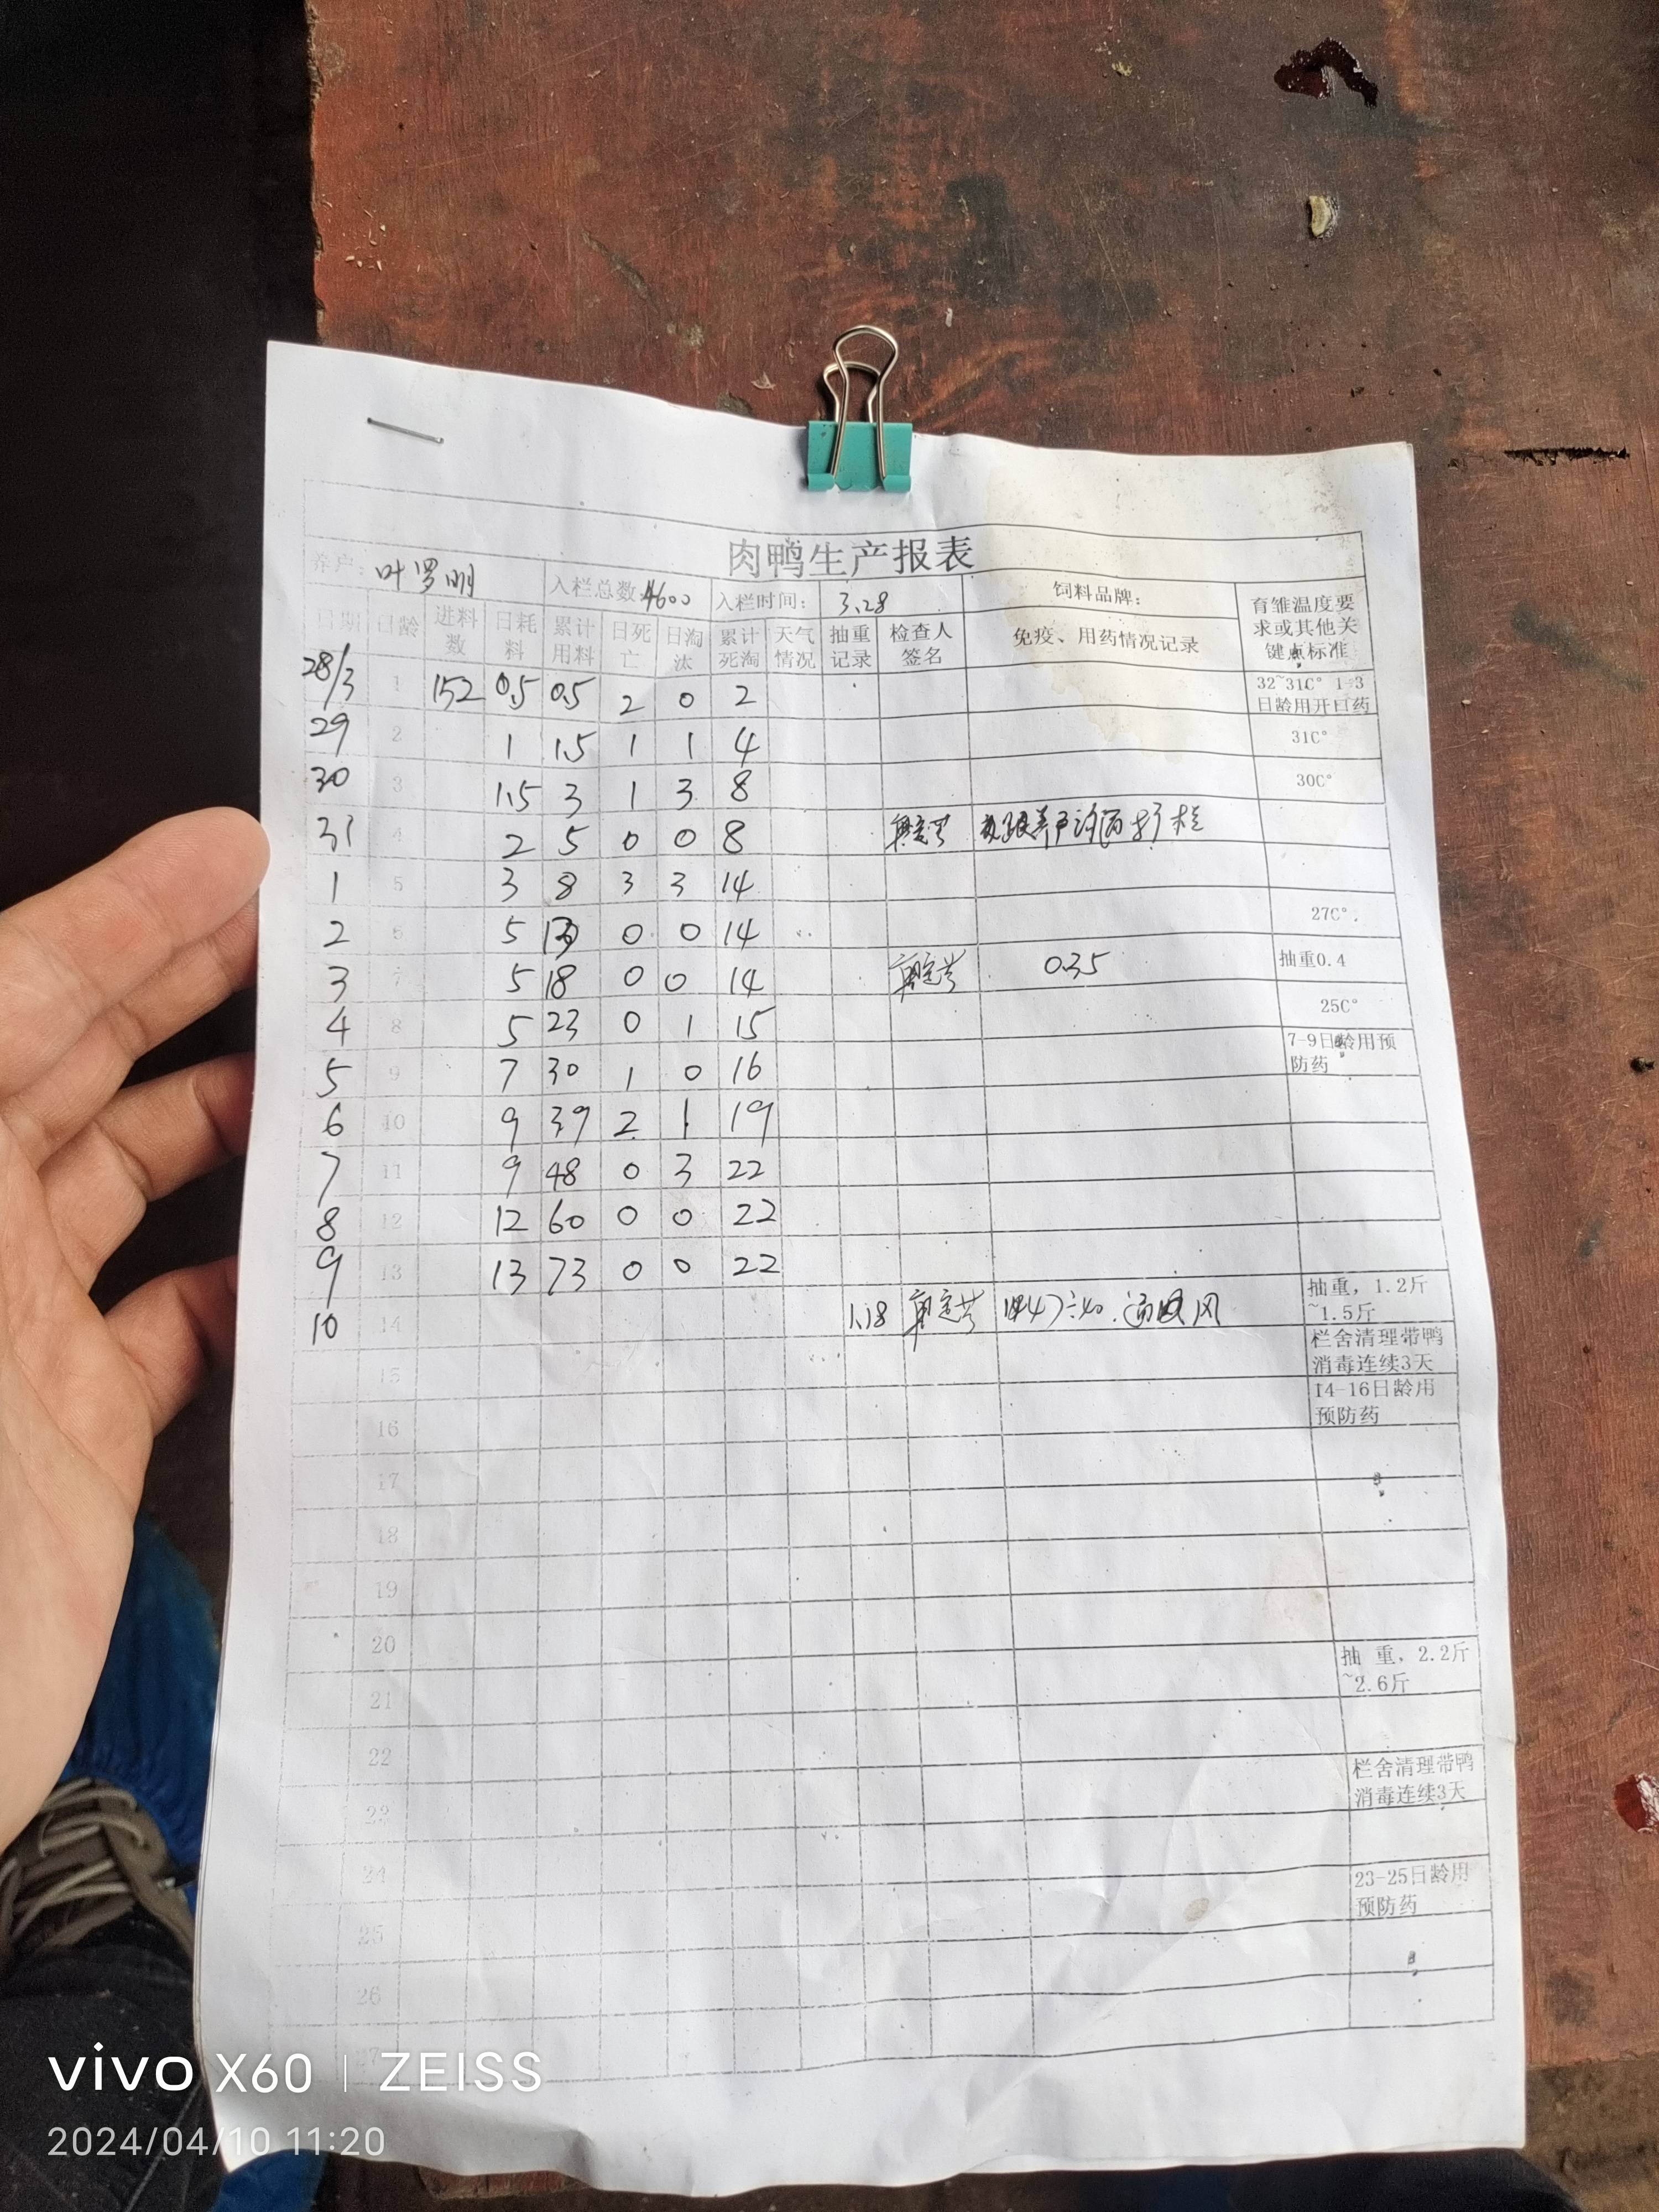 肉鸭生产报表
养户：叶罗明 入栏总数：4600 入栏时间： 3.28 饲料品牌： 育雏温度要求或其他关键点标准
日期 日龄 进料数 日耗料 累计用料 日死亡 日淘汰 累计死淘 天气情况 抽重记录 检查人签名 免疫、用药情况记录
28/3 1 152 0.5 0.5 2 0 2 32~31C° 1-3日龄用开口药
29 2 1 1.5 1 1 4 31C°
30 3 1.5 3 1 3 8 30C°
31 4 2 5 0 0 8
1 5 3 8 3 3 14
2 6 5 13 0 0 14 27C°.
3 7 5 18 0 0 14 0.35 抽重0.4
4 8 5 23 0 1 15 25C°
5 9 7 30 1 0 16 7-9日龄用预防药
6 10 9 39 2 1 19
7 11 9 48 0 3 22
8 12 12 60 0 0 22
9 13 13 73 0 0 22
10 14 1.18 抽重，1.2斤~1.5斤
15 栏舍清理带鸭消毒连续3天
16 14-16日龄用预防药
17
18
19
20
21 抽 重，2.2斤~2.6斤
22
23 栏舍清理带鸭消毒连续3天
24
25 23-25日龄用预防药
26
27
vivo X60 | ZEISS
2024/04/10 11:20